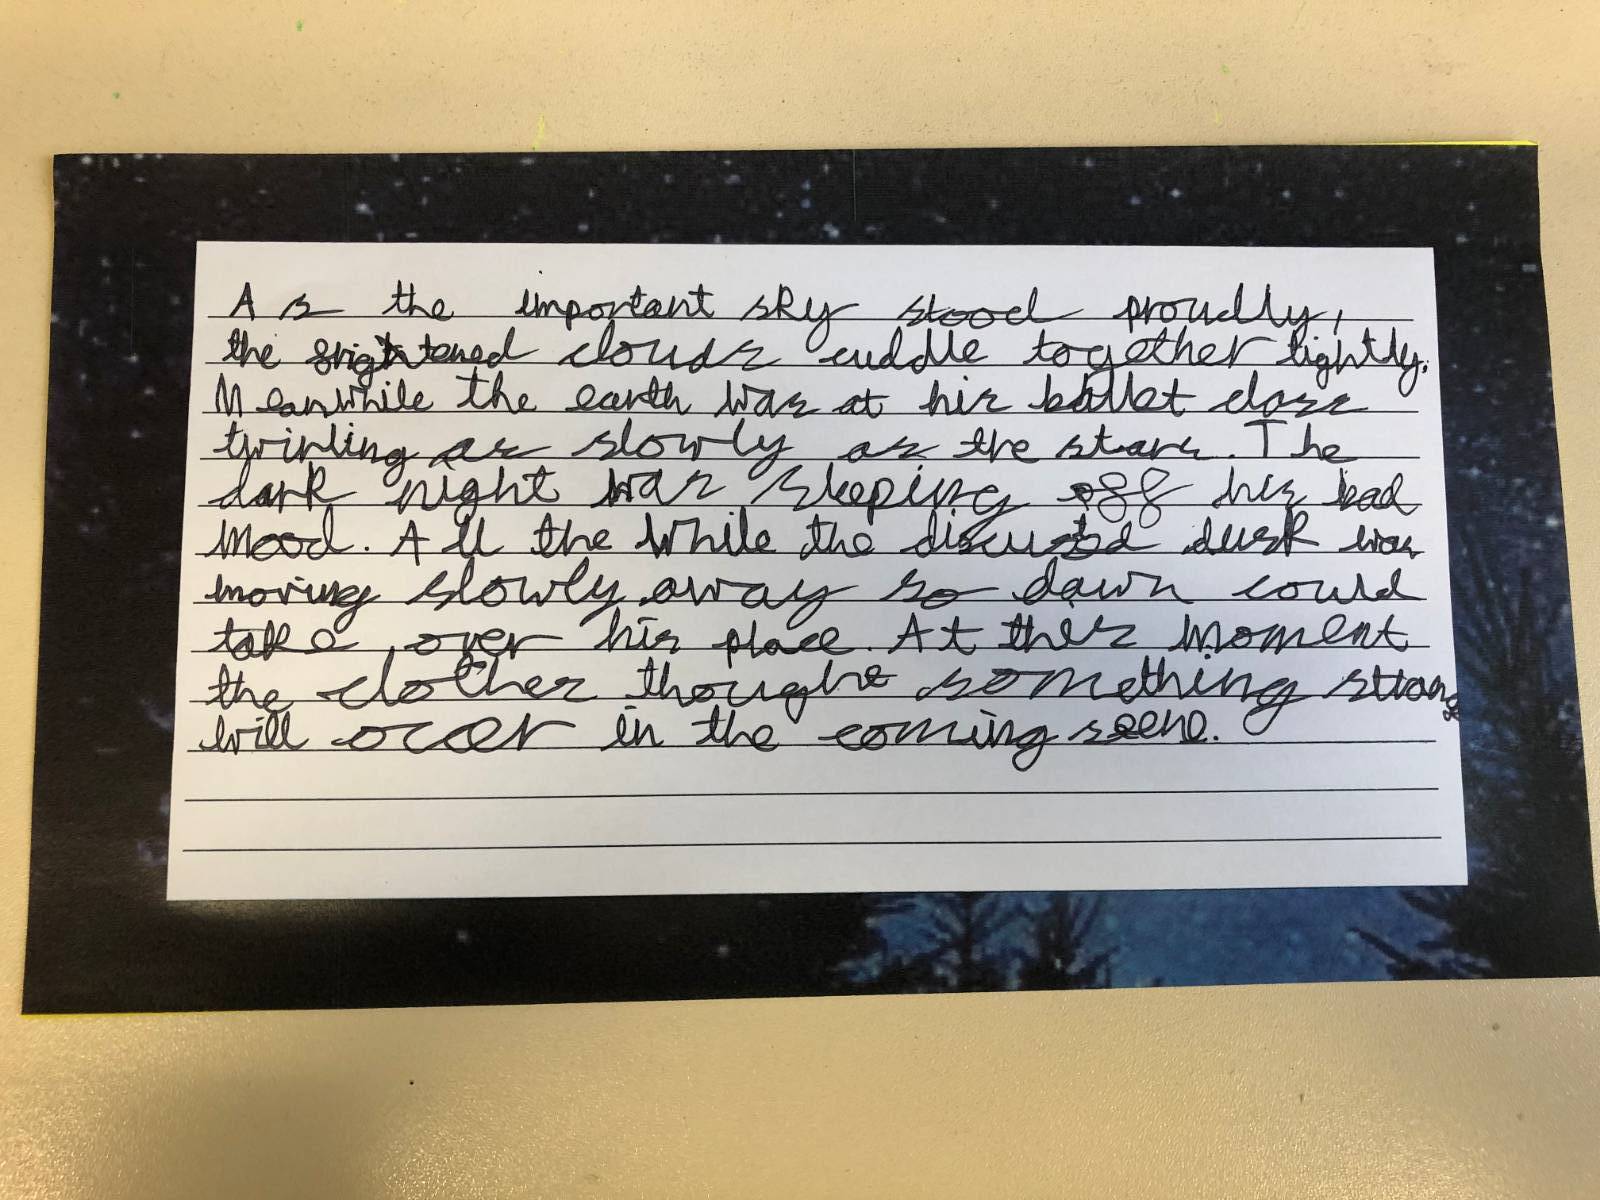 As the important sky stood proudly,
the frightened clouds cuddle together tightly.
Meanwhile the earth was at his ballet class
twirling as slowly as the stars. The
dark night was sleeping off his bad
mood. All the while the discusted dusk was
moving slowly away so dawn could
take over his place. At this moment
the clother thoughs something strange
will occer in the coming scene.